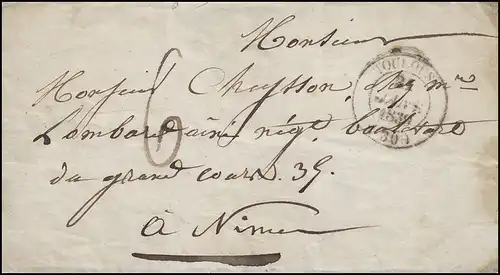 Monsieur
Monsieur Cheysson, chez mr
Lombard ainé négt boulevart
du grand cours. 35.
à Nimes
6
TOULOUSE
1834